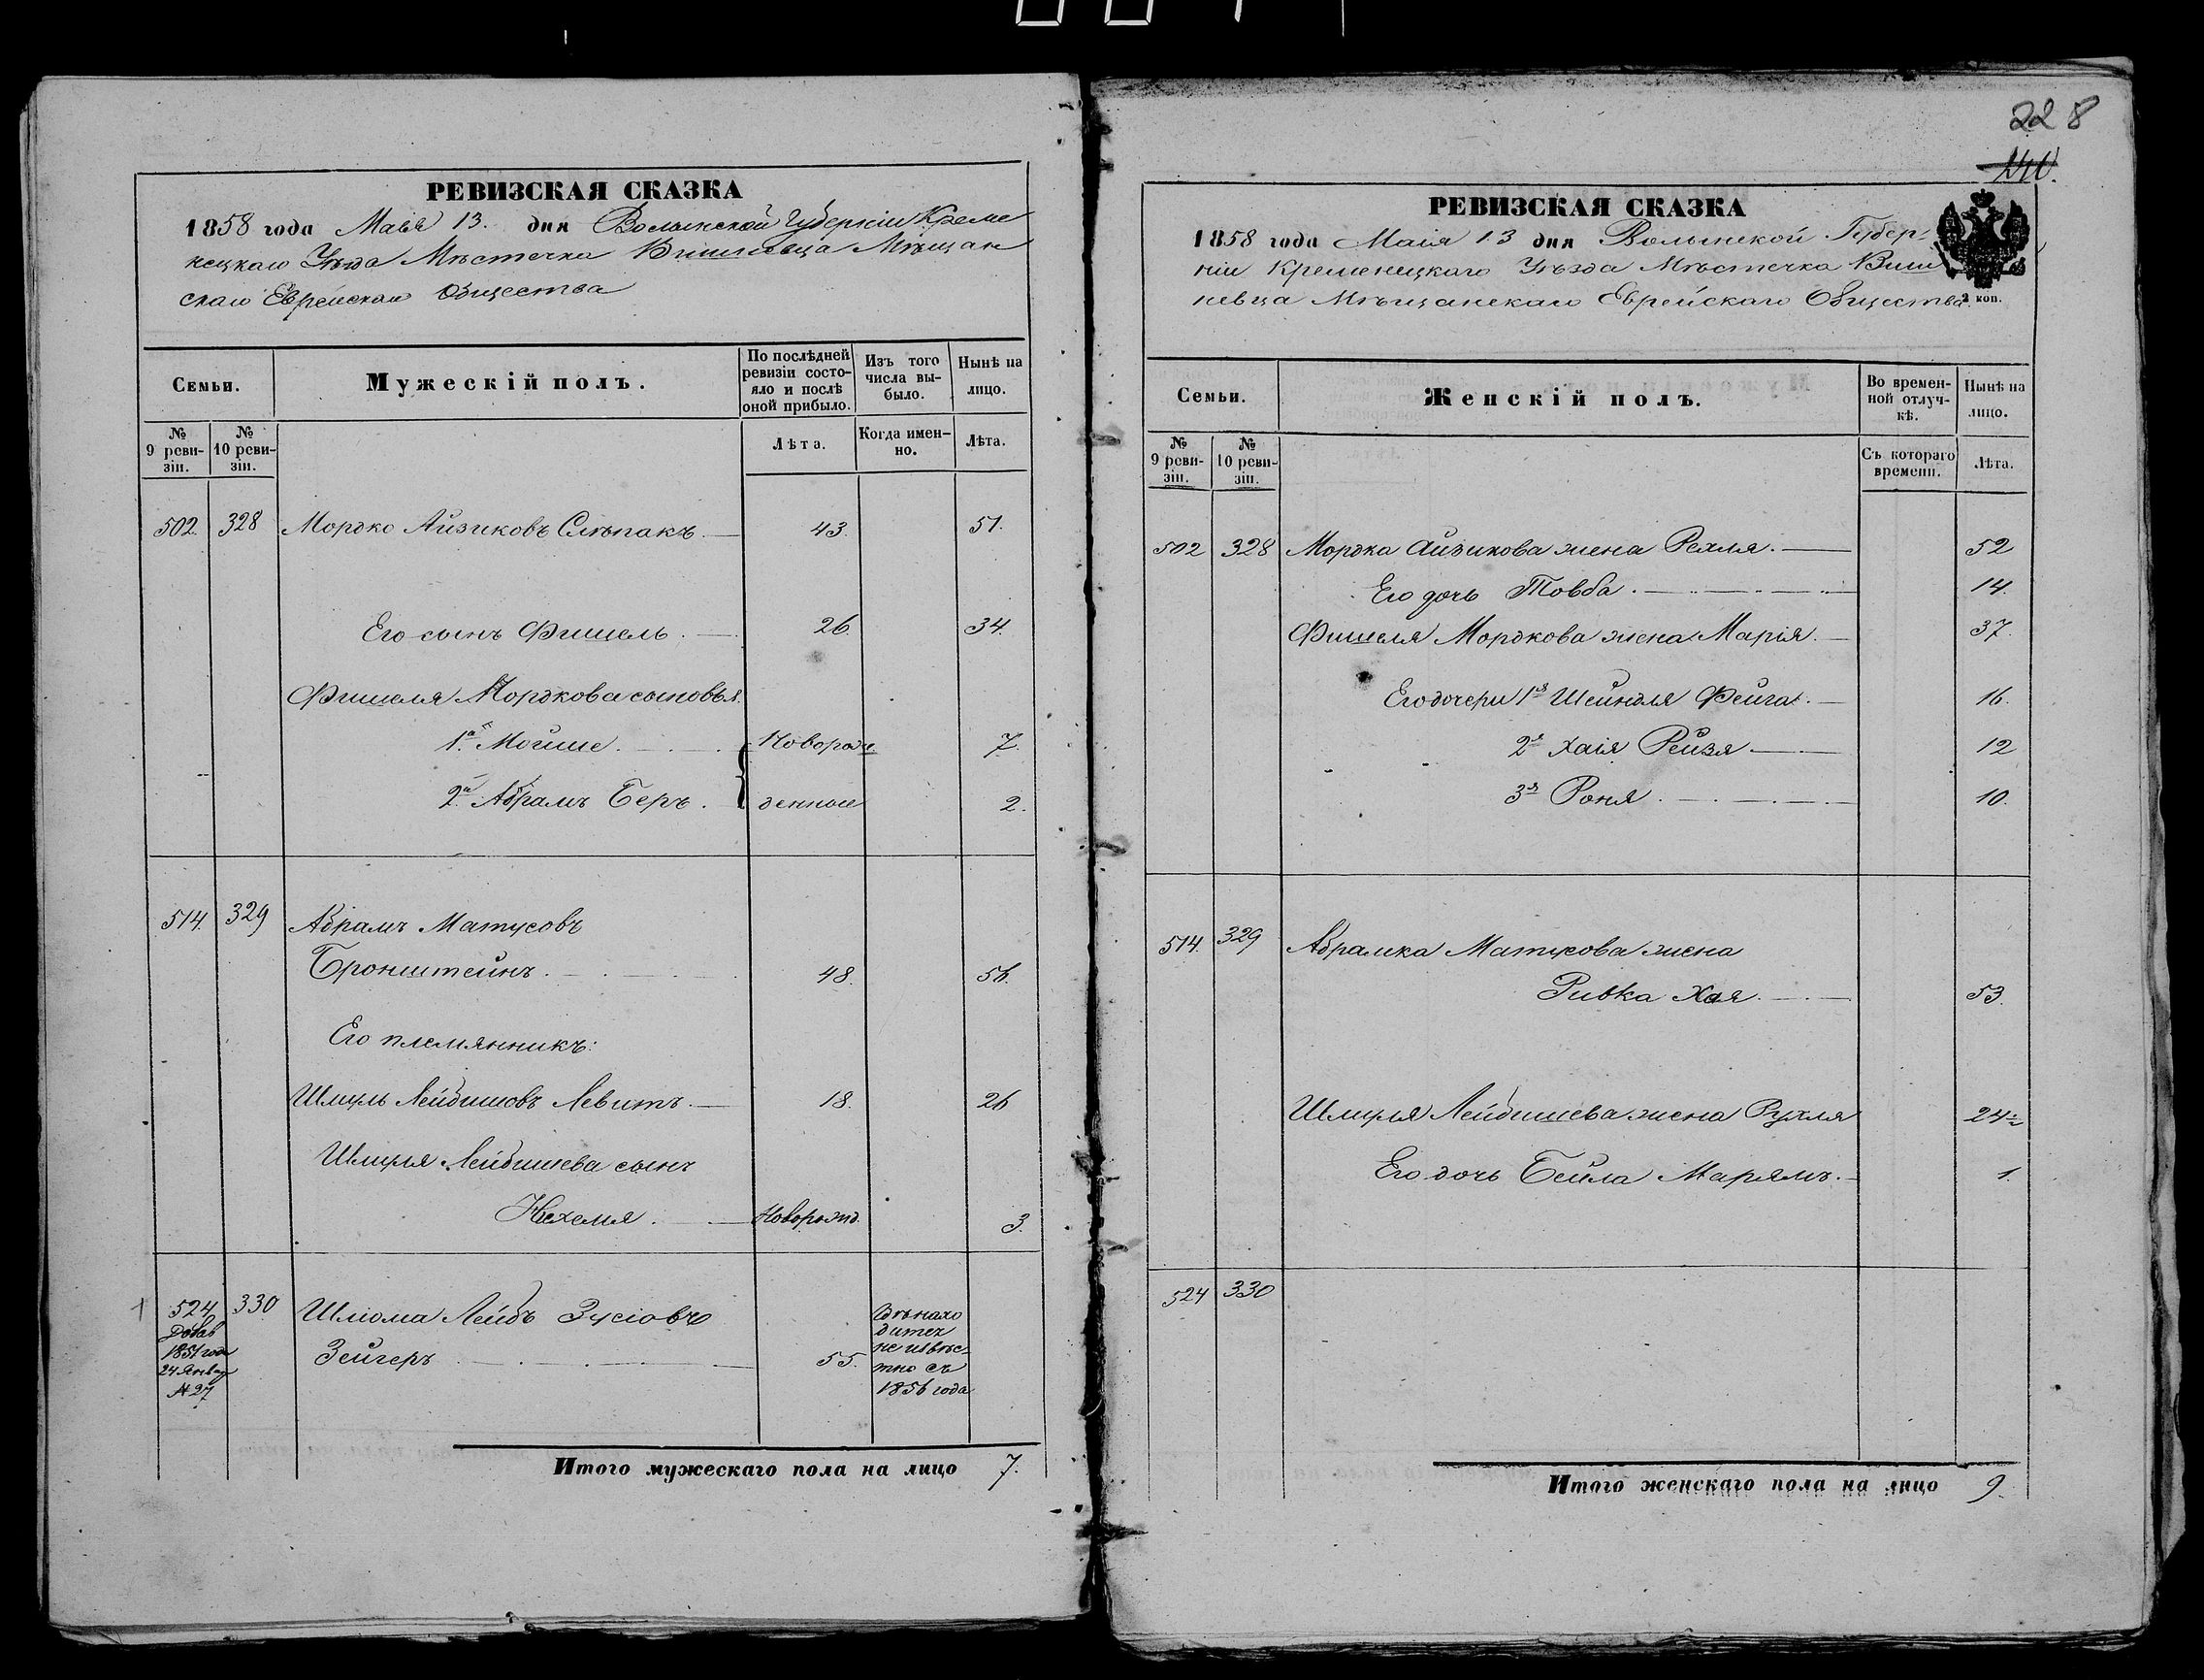 228
РЕВИЗСКАЯ СКАЗКА
1858 года Маія 13. дня Волынской Губерніи Креме
нецкаго Уѣзда Мѣстечка Вишневца Мѣщан
скаго Еврейскаго Общества
Семьи.
Мужескій полъ.
По послѣдней ревизіи состояло и послѣ оной прибыло.
Изъ того числа выбыло.
Нынѣ на лицо.
№ 9 ревизіи.
№ 10 ревизіи.
Лѣта.
Когда именно.
Лѣта.
502. 328 Мордко Айзиковъ Слѣпакъ. 43. 51.
Его сынъ Фишель. 26. 34.
Фишеля Мордкова сыновья.
1й Мойше. Новорож 7.
2й Абрамъ Беръ. денные 2.
514. 329 Абрамъ Матусовъ
Бронштейнъ. 48. 56.
Его племянникъ:
Шмуль Лейбишовъ Левитъ. 18. 26
Шмуля Лейбишева сынъ
Нехемя. Новорожд. 3.
524 330 Шліома Лейбъ Зусіовъ
Добав
1851 года
24 Январ
№ 27
Зейгеръ 55.
Гдѣ нахо
дитея
не извѣс-
тно съ
1856 года
Итого мужескаго пола на лицо 7.
РЕВИЗСКАЯ СКАЗКА
1858 года Маія 13 дня Волынской Губер-
ніи Кременецкаго Уѣзда Мѣстечка Виш
невца Мѣщанскаго Еврейскаго Общества.
2 коп.
Семьи.
Женскій полъ.
Во временной отлучкѣ.
Нынѣ на лицо.
№ 9 ревизіи.
№ 10 ревизіи.
Съ котораго времени.
Лѣта.
502 328 Мордка Айзикова жена Рехля. 52
Его дочь Товба. 14.
Фишеля Мордкова жена Марія. 37.
Его дочери 1я Шейндля Фейга. 16.
2я Хаія Рейзя 12
3я Роня. 10.
514. 329 Абрамка Матусова жена
Ривка Хая. 53.
Шмуля Лейбишева жена Рухля 24
Его дочь Бейла Марямъ. 1.
524 330
Итого женскаго пола на лицо 9.